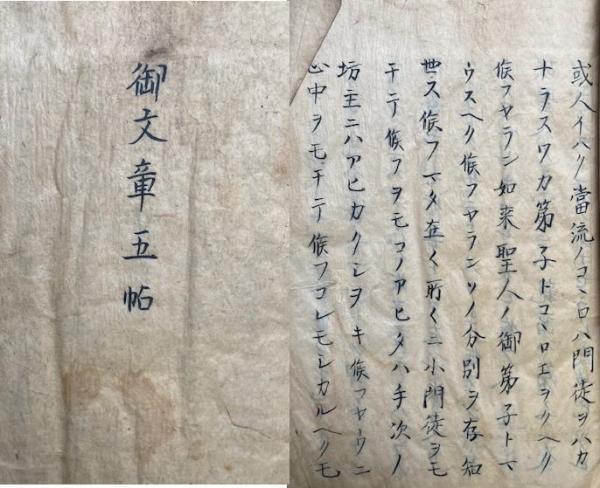 御文章五帖
或人イハク當流ノコヽロハ門徒ヲハカ
ナラスワカ第子トコヽロエヲクヘク
候フヤラン如来聖人ノ御第子トマ
ウスヘク候フヤランソノ分別ヲ存知
世ス候フマタ在〱所〱ニ小門徒ヲモ
チテ候フヲモコノアヒタハ手次ノ
坊主ニハアヒカクシヲキ候フヤウニ
心中ヲモチテ候フコレモシカルヘクモ